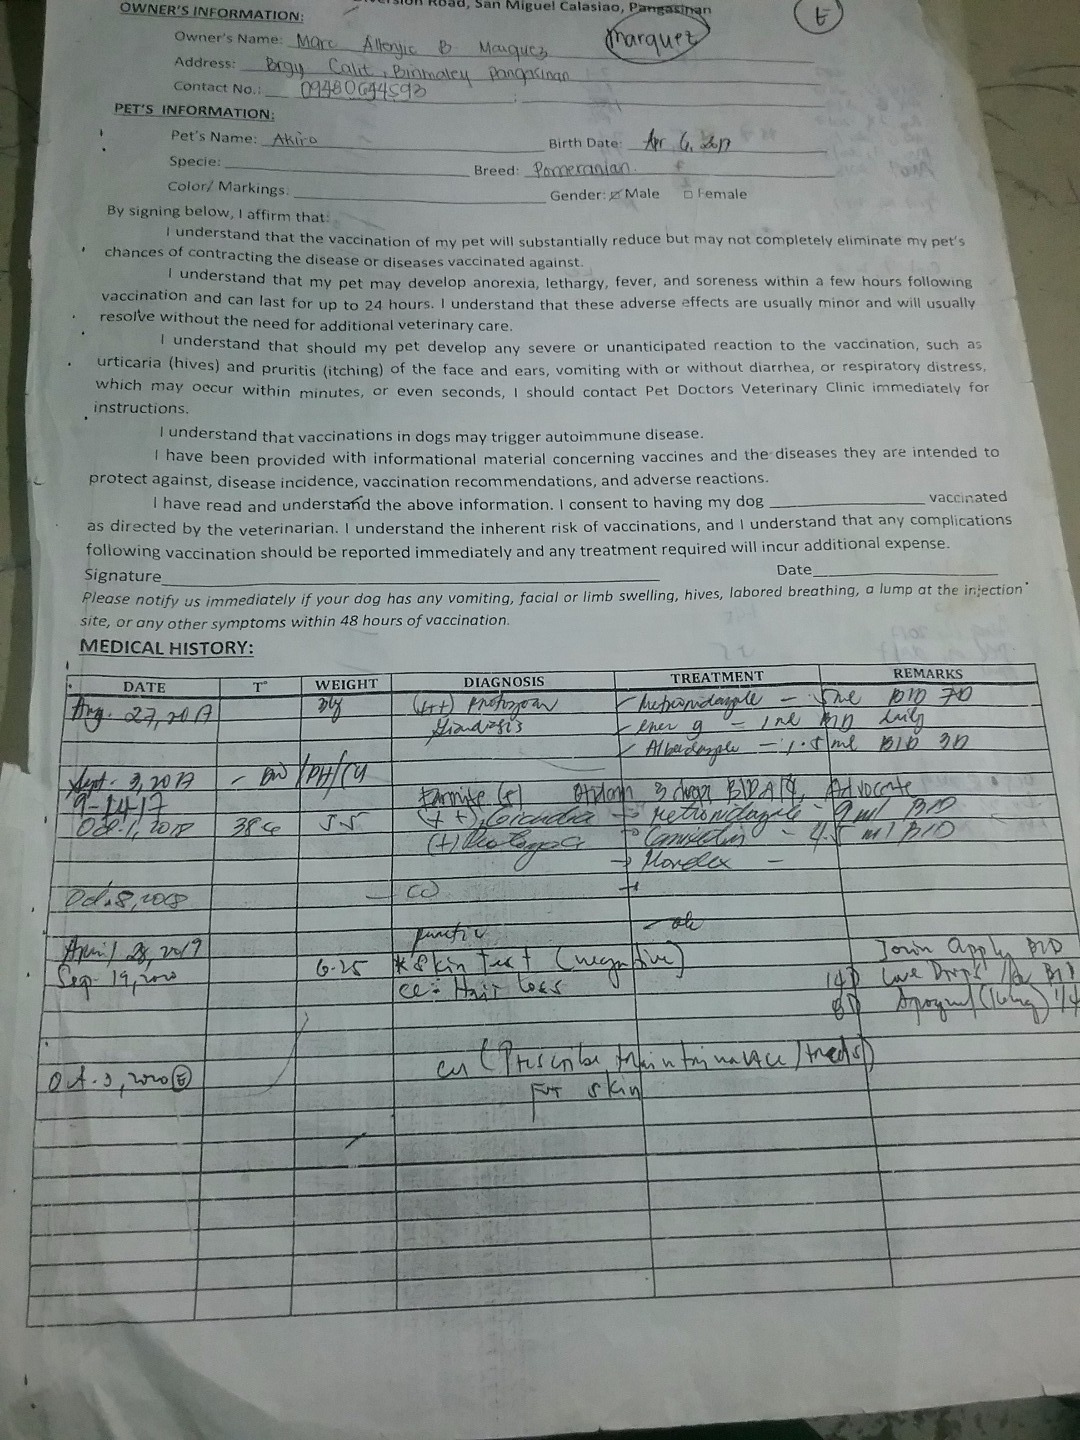 Road, San Miguel Calasiao, Pangasinan
OWNER'S INFORMATION:
E
Owner's Name: Marc B Marquez
Marquez
Address: Brgy Calit, Binmaley Pangasinan
Contact No.:
PET'S INFORMATION:
Pet's Name: Akiro Birth Date: Apr. 6, 2017
Specie: Breed: Pomeranian
Color/ Markings: Gender: Male Female
By signing below, I affirm that:
I understand that the vaccination of my pet will substantially reduce but may not completely eliminate my pet's
chances of contracting the disease or diseases vaccinated against.
I understand that my pet may develop anorexia, lethargy, fever, and soreness within a few hours following
vaccination and can last for up to 24 hours. I understand that these adverse effects are usually minor and will usually
resolve without the need for additional veterinary care.
I understand that should my pet develop any severe or unanticipated reaction to the vaccination, such as
urticaria (hives) and pruritis (itching) of the face and ears, vomiting with or without diarrhea, or respiratory distress,
which may occur within minutes, or even seconds, I should contact Pet Doctors Veterinary Clinic immediately for
instructions.
I understand that vaccinations in dogs may trigger autoimmune disease.
I have been provided with informational material concerning vaccines and the diseases they are intended to
protect against, disease incidence, vaccination recommendations, and adverse reactions.
I have read and understand the above information. I consent to having my dog vaccinated
as directed by the veterinarian. I understand the inherent risk of vaccinations, and I understand that any complications
following vaccination should be reported immediately and any treatment required will incur additional expense.
Signature Date
Please notify us immediately if your dog has any vomiting, facial or limb swelling, hives, labored breathing, a lump at the injection
site, or any other symptoms within 48 hours of vaccination.
MEDICAL HISTORY:
DATE T° WEIGHT DIAGNOSIS TREATMENT REMARKS
Aug. 27, 2017 (++) protozoan Metronidazole BID 7D
Giardiasis ener g - 1 ml daily
Albendazole - 1.5 ml BID 3D
Sept. 3, 2017
9-14-17 3 drops BID Advocate
Oct. 1, 2018 5.5 metronidazole - 9 ml BID
BID
Oct. 8, 2018
April 28, 2019
Sep. 19, 2020 6.25 * Skin Test (negative) apply BID
cc: Hair loss 14D BID
Apoquel (16mg) 1/4
Oct. 3, 2020 E (Prescribe
for skin